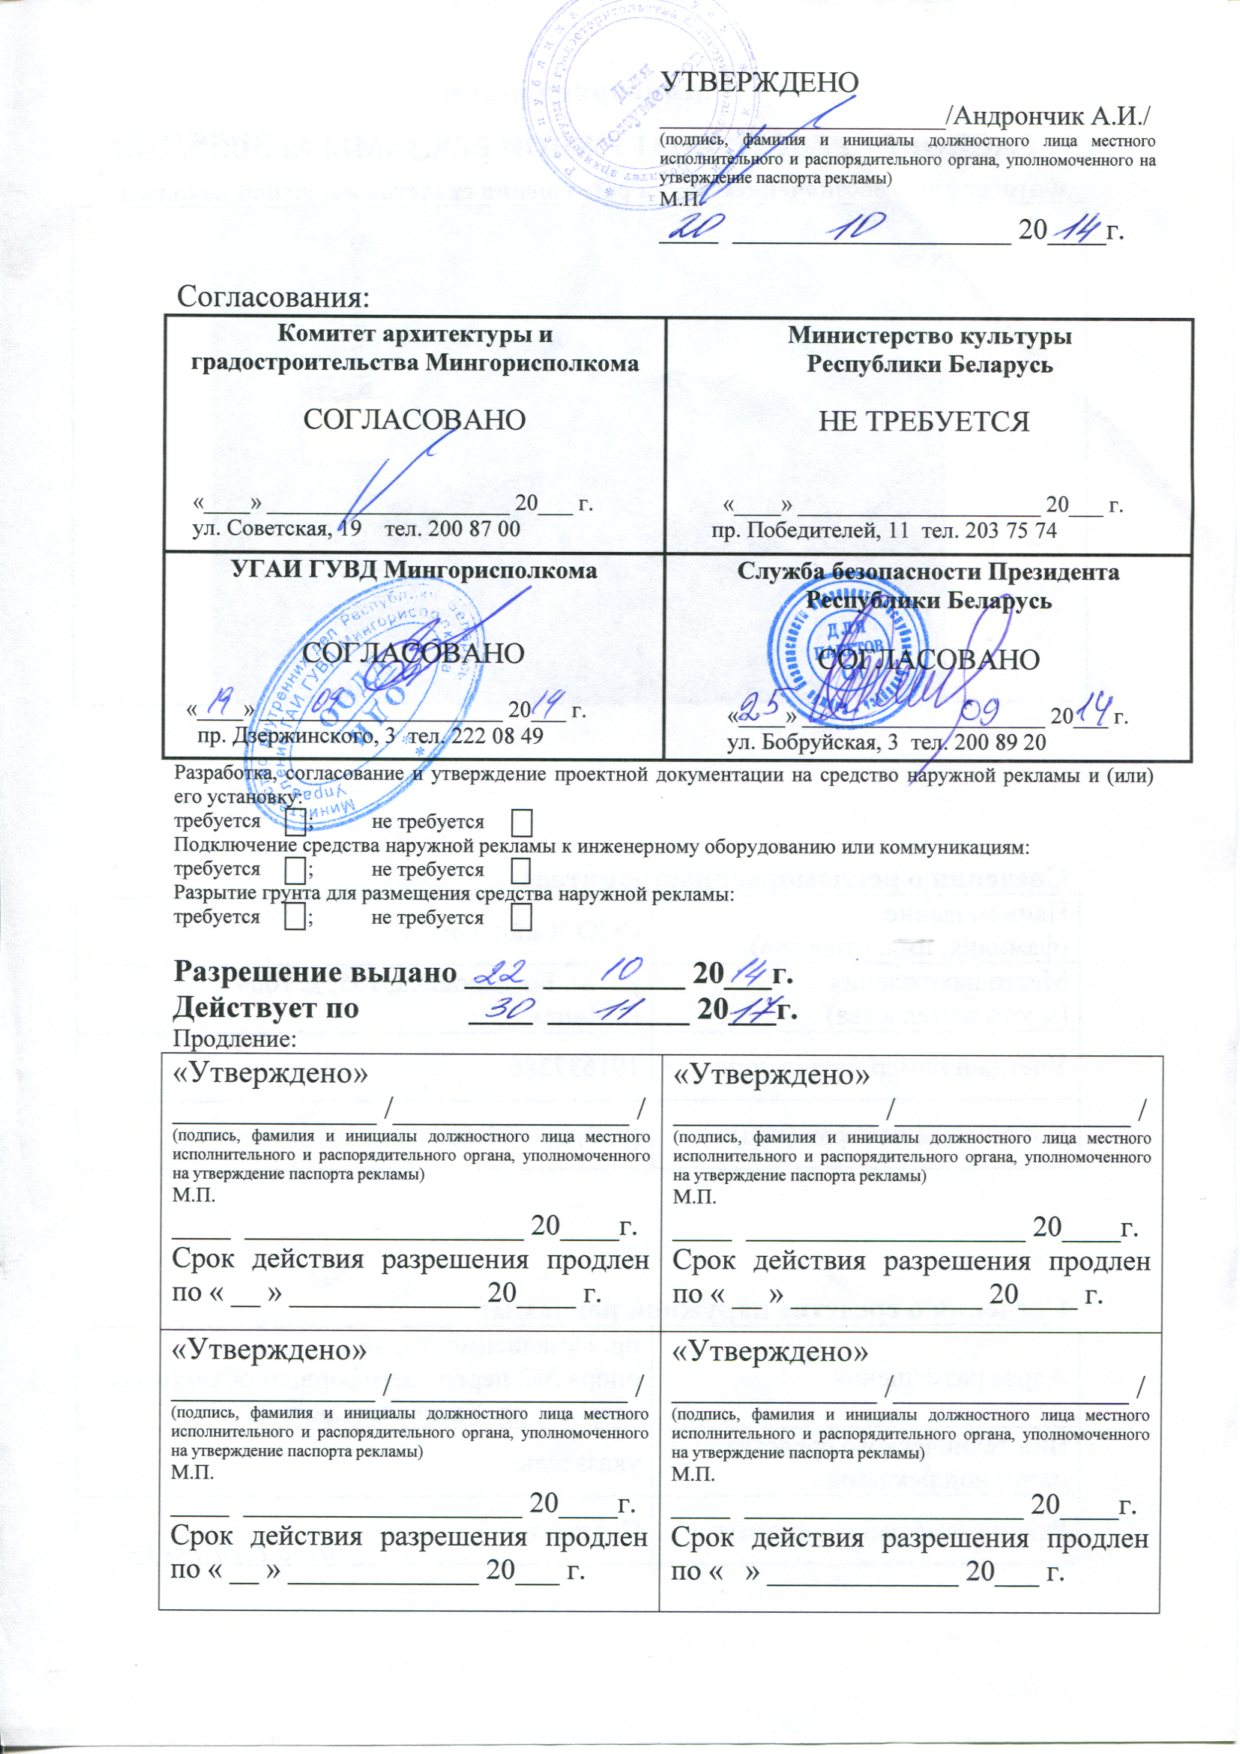 УТВЕРЖДЕНО
____________________/Андрончик А.И./
(подпись, фамилия и инициалы должностного лица местного
исполнительного и распорядительного органа, уполномоченного на
утверждение паспорта рекламы)
М.П.
20 10 2014г.
Для документов
Согласования:
Комитет архитектуры и
градостроительства Мингорисполкома
СОГЛАСОВАНО
«____» ____________________ 20___ г.
ул. Советская, 19 тел. 200 87 00
Министерство культуры
Республики Беларусь
НЕ ТРЕБУЕТСЯ
«____» ____________________ 20___ г.
пр. Победителей, 11 тел. 203 75 74
УГАИ ГУВД Мингорисполкома
СОГЛАСОВАНО
«19» 09 2014 г.
пр. Дзержинского, 3 тел. 222 08 49
Служба безопасности Президента
Республики Беларусь
ДЛЯ
ПАКЕТОВ
СОГЛАСОВАНО
«25» 09 2014 г.
ул. Бобруйская, 3 тел. 200 89 20
Разработка, согласование и утверждение проектной документации на средство наружной рекламы и (или)
его установку:
требуется ; не требуется
Подключение средства наружной рекламы к инженерному оборудованию или коммуникациям:
требуется ; не требуется
Разрытие грунта для размещения средства наружной рекламы:
требуется ; не требуется
Разрешение выдано 22 10 2014г.
Действует по 30 11 2017г.
Продление:
«Утверждено»
______________ /________________ /
(подпись, фамилия и инициалы должностного лица местного
исполнительного и распорядительного органа, уполномоченного
на утверждение паспорта рекламы)
М.П.
____ ___________________ 20____г.
Срок действия разрешения продлен
по « __ » _____________ 20____ г.
«Утверждено»
______________ /________________ /
(подпись, фамилия и инициалы должностного лица местного
исполнительного и распорядительного органа, уполномоченного
на утверждение паспорта рекламы)
М.П.
____ ___________________ 20____г.
Срок действия разрешения продлен
по « __ » _____________ 20____ г.
«Утверждено»
______________ /________________ /
(подпись, фамилия и инициалы должностного лица местного
исполнительного и распорядительного органа, уполномоченного
на утверждение паспорта рекламы)
М.П.
____ ___________________ 20____г.
Срок действия разрешения продлен
по « __ » _____________ 20___ г.
«Утверждено»
______________ /________________ /
(подпись, фамилия и инициалы должностного лица местного
исполнительного и распорядительного органа, уполномоченного
на утверждение паспорта рекламы)
М.П.
____ ___________________ 20____г.
Срок действия разрешения продлен
по « » _____________ 20___ г.